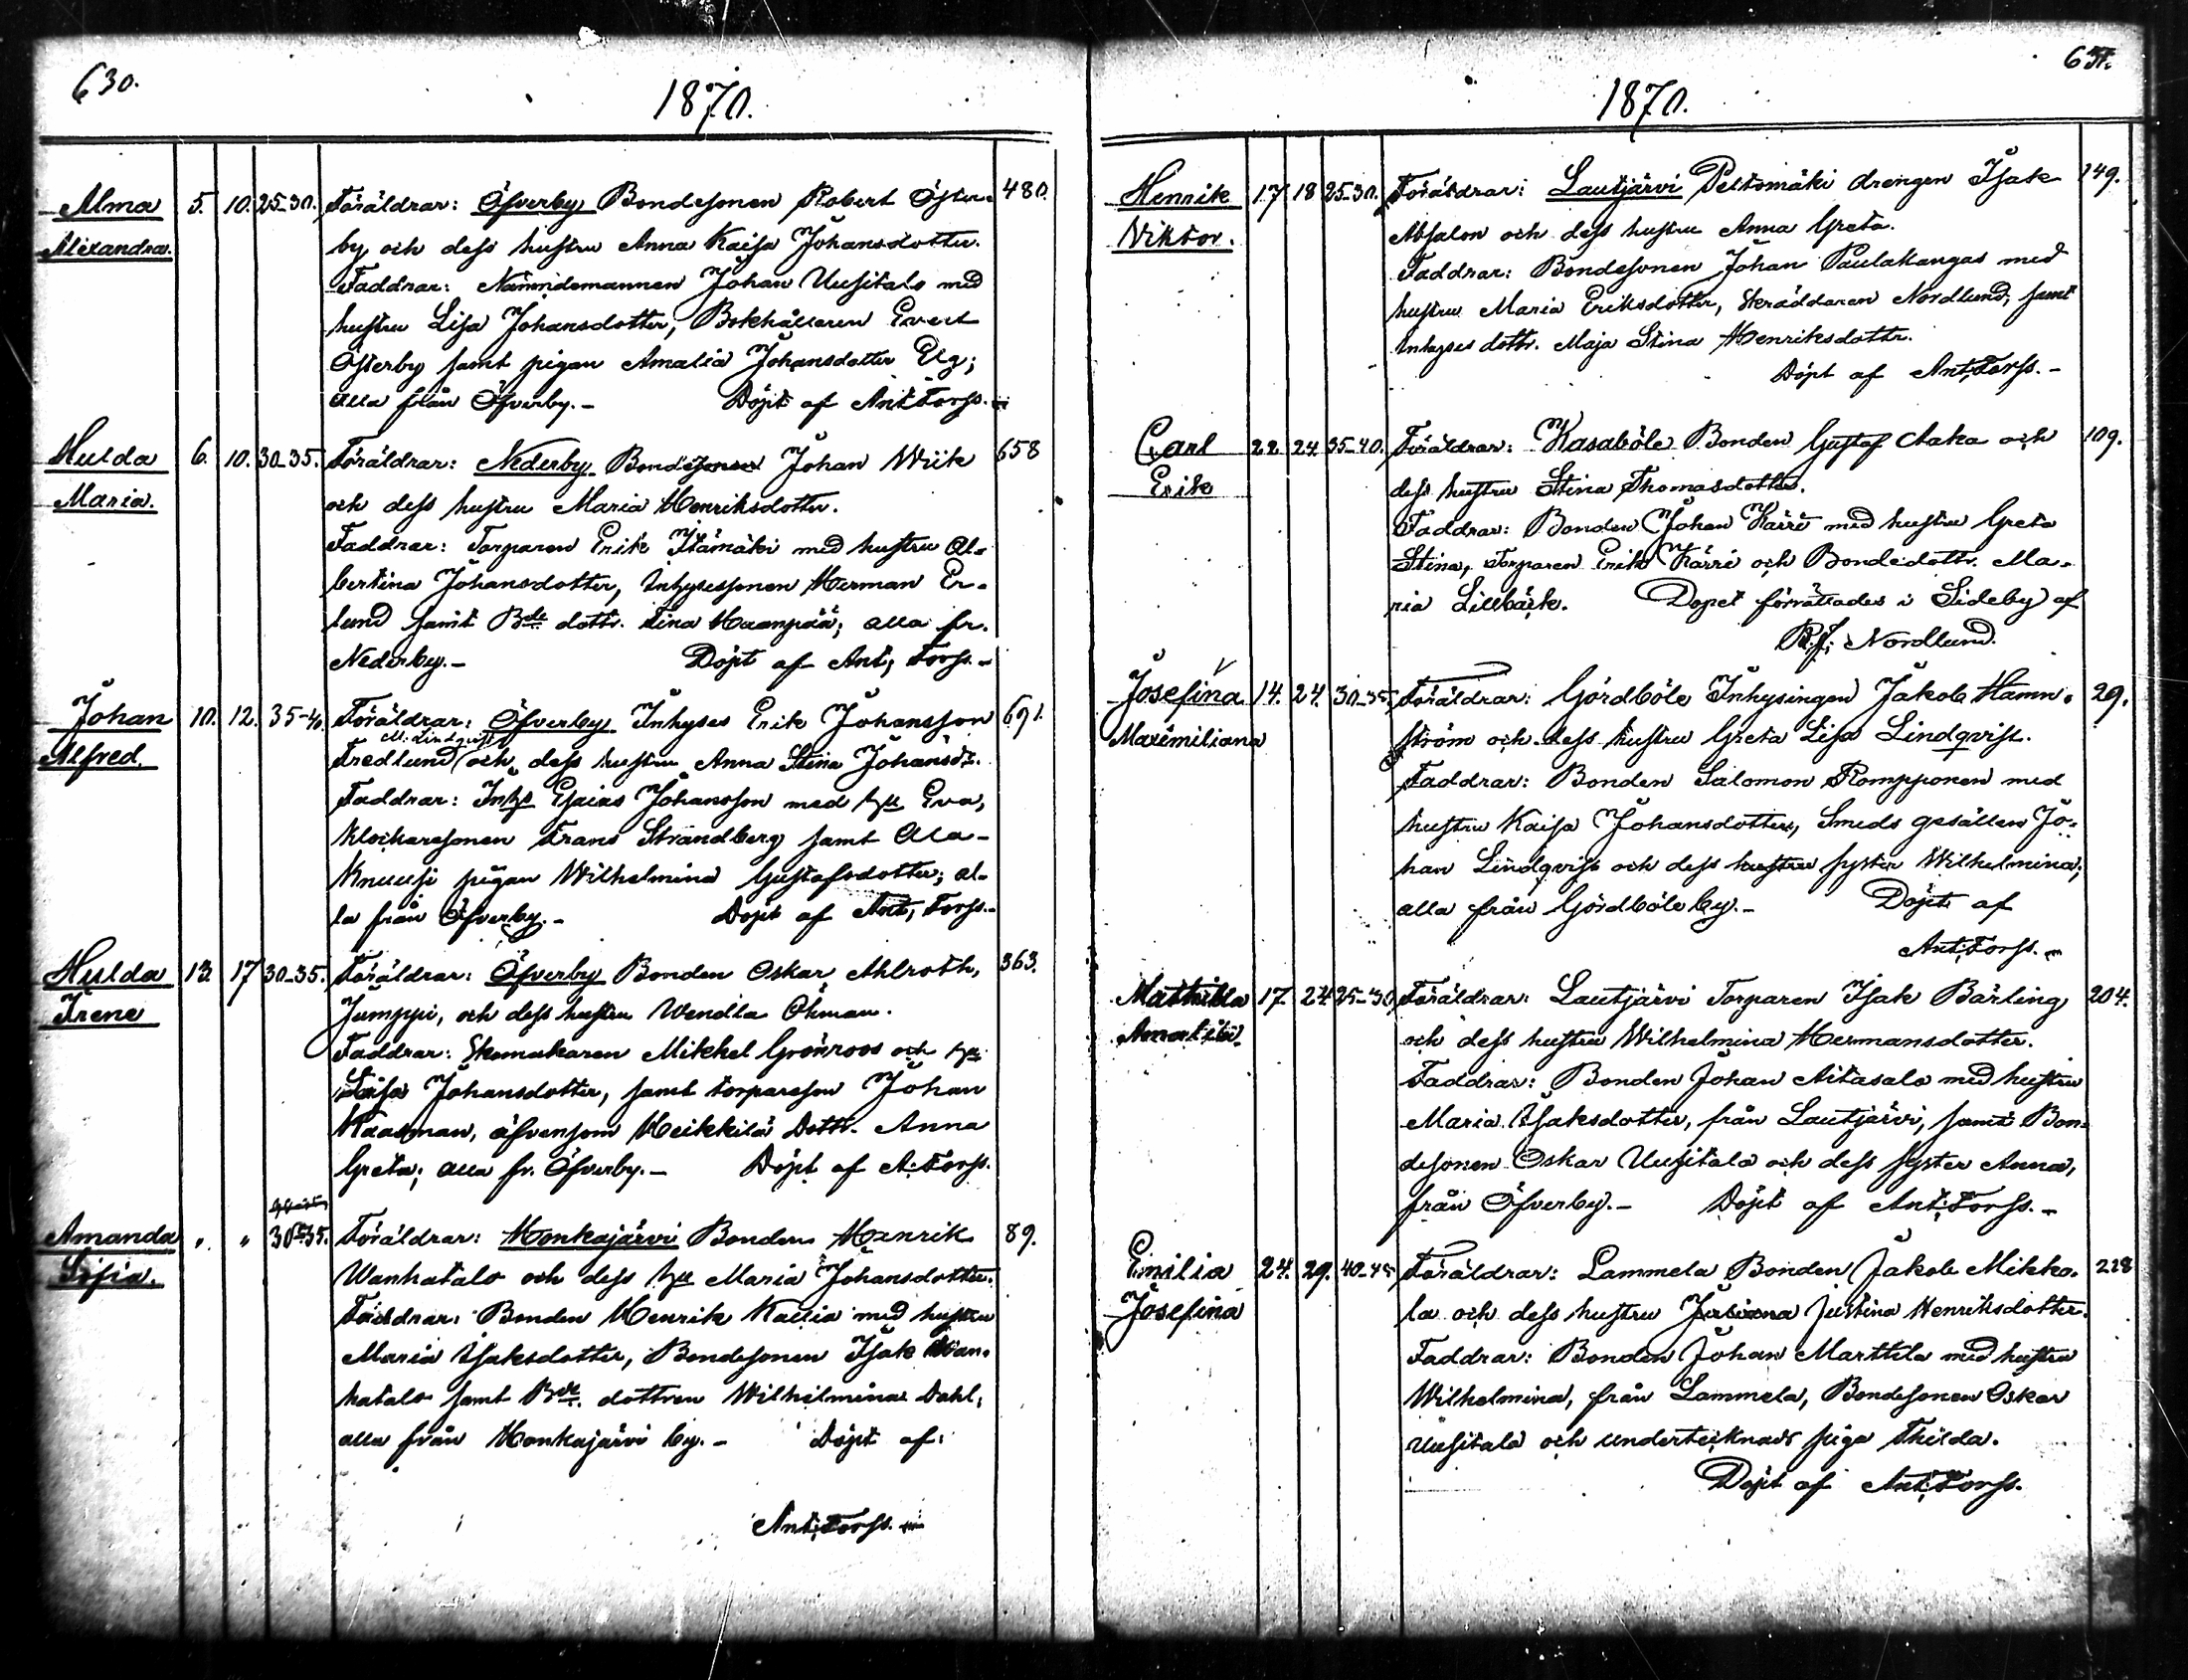 630.
1870.
Alma Alexandra. 5. 10. 25-30. Föräldrar: Öfverby Bondesonen Robert Öster- 480.
by och dess hustru Anna Kaisa Johansdotter.
Faddrar: Nämndemannen Johan Uusitalo med
hustru Lisa Johansdotter, Bokhållaren Evert
Österby samt pigan Amalia Johansdotter Elg;
alla från Öfverby.- Döpt af Ant: Forss.-
Hulda Maria. 6. 10. 30-35. Föräldrar: Nederby Bondesonen Johan Wiik 658
och dess hustru Maria Henriksdotter.
Faddrar: Torparen Erik Itämäki med hustru Al-
bertina Johansdotter, Inhysessonen Herman Er-
lund samt Bde dottr. Tina Haanpää; alla fr.
Nederby.- Döpt af Ant; Forss.-
Johan Alfred. 10. 12. 35-40. Föräldrar: Öfverby Inhyses Erik Johansson 691.
M. Lindqvist
Fredlund och dess hustru Anna Stina Johansdr.
Faddrar: Inhs Esaias Johansson med hu Eva,
Klockaresonen Frans Strandberg samt Ala-
Knuusi pigan Wilhelmina Gustafsdotter; al-
la från Öfverby.- Döpt af Ant; Forss.-
Hulda Irene 13. 17 30-35. Föräldrar: Öfverby Bonden Oskar Ahlroth, 363.
Jumppi, och dess hustru Wendla Öhman.
Faddrar: Skomakaren Mikkel Grönroos och hu
Caisa Johansdotter, samt torpareson Johan
Kaasman, äfvensom Heikkilä Dottr. Anna
Greta; alla fr. Öfverby.- Döpt af A: Forss.
Amanda Sofia. " " 30-35. Föräldrar: Honkajärvi Bonden Henrik 89.
Wanhatalo och dess hu Maria Johansdotter.
Faddrar: Bonden Henrik Kallia med hustru
Maria Isaksdotter, Bondesonen Isak Wan-
hatalo samt Bde. dottren Wilhelmina Dahl,
alla från Honkajärvi by.- Döpt af:
Ant: Forss.-
631.
1870.
Henrik Viktor. 17 18 25-30. Föräldrar: Lautjärvi Peltomäki drengen Isak 149.
Absalon och dess hustru Anna Greta.
Faddrar: Bondesonen Johan Paulakangas med
hustru Maria Eriksdotter, Skräddaren Nordlund, samt
Inhyses dottr. Maja Stina Henriksdottr.
Döpt af Ant: Forss.-
Carl Erik 22. 24. 35-40. Föräldrar: Kasaböle Bonden Gustaf Aaka och 109.
dess hustru Stina Thomasdotter.
Faddrar: Bonden Johan Kärri med hustru Greta
Stina, Torparen Erik Kärri och Bondedottr. Ma-
ria Lillbäck. Dopet förrättades i Sideby af
B. J: Nordlund.
Josefina Maximiliana 14. 24. 30-35. Föräldrar: Gördböle Inhysingen Jakob Hamn- 29.
ström och dess hustru Greta Lisa Lindqvist.
Faddrar: Bonden Salomon Rompponen med
hustru Kaisa Johansdotter, Smeds gesällen Jo-
han Lindqvist och dess hustru syster Wilhelmina;
alla från Gördböle by.- Döpt af
Ant: Forss.-
Mathilda Amalia. 17. 24 25-30 Föräldrar: Lautjärvi Torparen Isak Bärling 204.
och dess hustru Wilhelmina Hermansdotter.
Faddrar: Bonden Johan Aitasalo med hustru
Maria Isaksdotter, från Lautjärvi, samt Bon-
desonen Oskar Uusitalo och dess syster Anna,
från Öfverby.- Döpt af Ant: Forss.-
Emilia Josefina 24. 29. 40-45 Föräldrar: Lammela Bonden Jakob Mikko- 228
la och dess hustru Juliana Justina Henriksdotter.
Faddrar: Bonden Johan Marttila med hustru
Wilhelmina, från Lammela, Bondesonen Oskar
Uusitalo och undertecknads piga Thilda.
Döpt af Ant: Forss.